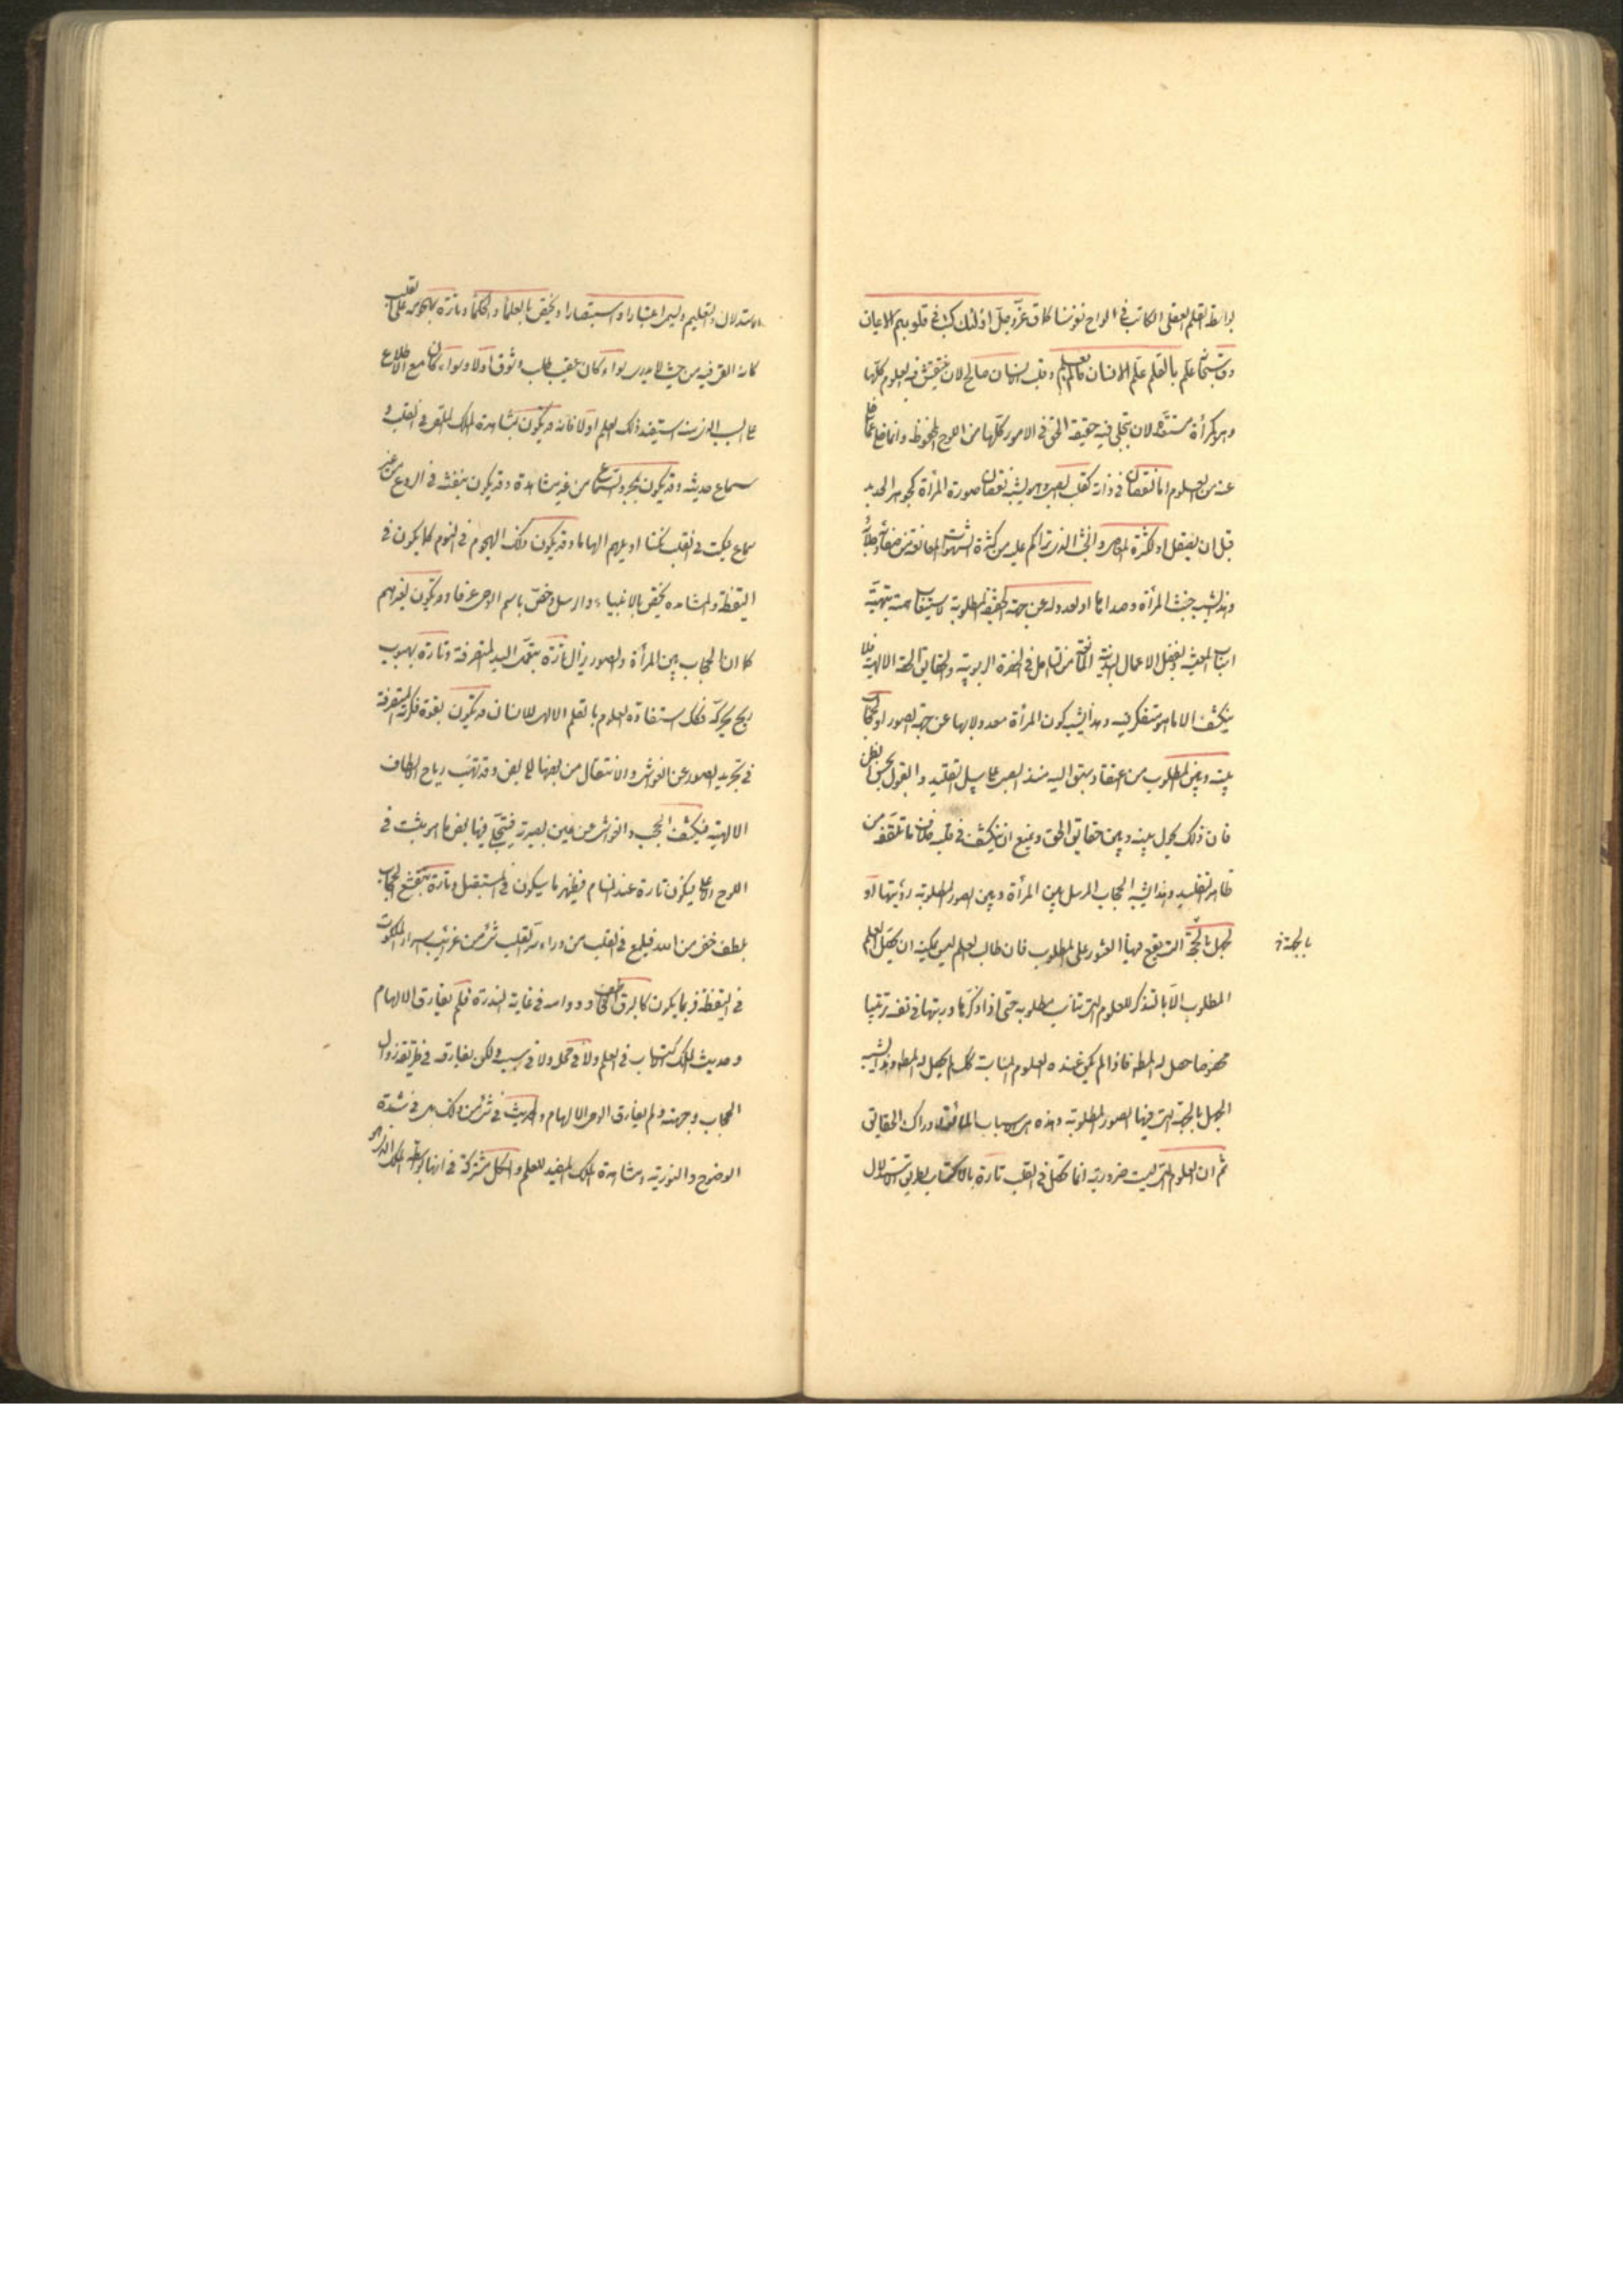 بواسطة القلم العقلى الكاتب فى الواح نفوسنا كما قال عزّ وجلّ اولئك كتب فى قلوبهم الايمان
وقال سبحانه علّم بالقلم علّم الانسان ما لم يعلم وقلب الانسان صالح لان ينتقش فيه العلوم كلّها
وهو كمرآة مستعدّة لان يتجلى فيه حقيقة الحق فى الامور كلّها من اللوح المحفوظ وانما خلا عمّا خلا
عنه من العلوم اما لنقصان فى ذاته كقلب الصبى وهو يشبه نقصان صورة المرآة كجوهر الحديد
قبل ان يصقل او لكثرة المعاصى والخبث الذى تراكم عليه من كثرة الشهوات المانعة من صفائه وجلائه
وهذا يشبه خبث المرآة وصداها او لعدوله عن جهة الحقيقة المطلوبة لاستيعاب همته بتهيّة
اسباب المعيشة وتفصيل الاعمال البدنية المانعة من التامل فى الحضرة الربوبية والحقايق الحقة الالهية فلا
ينكشف الا ما هو متفكر فيه وهذا يشبه كون المرآة معدولا بها عن جهة الصور او لحجاب
بينه وبين المطلوب من اعتقاد سبق اليه منذ الصبى على سبيل التقليد والقبول بحسن الظن
فان ذلك يحول بينه وبين حقايق الحق ويمنع ان ينكشف فى قلبه خلاف ما تلقفه من
ظاهر التقليد وهذا يشبه الحجاب المرسل بين المرآة وبين الصور المطلوبة رؤيتها او
لجهل بالجهة التى يقع فيها العثور على المطلوب فان طالب العلم ليس يمكنه ان يحصّل العلم
بالجهة خ
المطلوب الّا بالتذكر للعلوم التى تناسب مطلوبه حتى اذا تذكّرها ورتبها فى نفسه ترتيبا
مخصوصا حصل له المط فاذا لم يكن عنده العلوم المناسبة لذلك لم يحصل له المط وهذا يشبه
الجهل بالجهة التى فيها الصور المطلوبة وهذه هى الاسباب المانعة لادراك الحقايق
ثم ان العلوم التى ليست ضرورية انما تحصل فى القلب تارة بالاكتساب بطريق الاستدلال
والاستدلال والتعليم وليس اعتبارا واستبصارا ويختص بالعلماء والحكماء وتارة بهجومه على القلب
كانه القى فيه من حيث لا يدرى سواء كان عقيب طلب وشوق اولا وسواء كان مع الاطلاع
على السبب الذى منه استفيد ذلك العلم او لا فانه قد يكون بمشاهدة الملك الملقى فى القلب و
سماع حديثه وقد يكون بمجرد السماع من غير مشاهدة وقد يكون بنفثه فى الروع من غير
سماع ينكت فى القلب نكتا او يلهم الهاما وقد يكون ذلك الهجوم فى النوم كما يكون فى
اليقظة والمشاهدة يختص بالانبياء والرسل وخصّ باسم الوحى عرفا وقد يكون لغيرهم
كما ان الحجاب بين المرآة والصور يزال تارة بتعمّل اليد المتصرفة وتارة بهبوب
ريح يحركه فكذلك استفادة العلوم بالقلم الالهى للانسان قد يكون بقوة فكرته المتصرفة
فى تجريد الصور عن الغواشى والانتقال من بعضها الى بعض وقد تهبّ رياح الالطاف
الالهية فينكشف الحجب والغواشى عن عين بصيرته فيتجلّى فيها بعض ما هو مثبت فى
اللوح الاعلى فيكون تارة عند المنام فيظهر ما سيكون فى المستقبل وتارة ينقشع الحجاب
بلطف خفى من الله فيلمع فى القلب من وراء ستر الغيب شئ من غرائب اسرار الملكوت
فى اليقظة فربما يكون كالبرق الخاطف ودوامه فى غاية الندرة فلم يفارق الالهام
وحديث الملك الاكتساب فى العلم ولا فى محله ولا فى سببه ولكن يفارقه فى طريقة زوال
الحجاب وجهته ولم يفارق الوحى الالهام والحديث فى شئ من ذلك بل فى شدة
الوضوح والنورية ومشاهدة الملك المفيد للعلم والكل مشتركة فى انها بواسطة الملك الذى هو